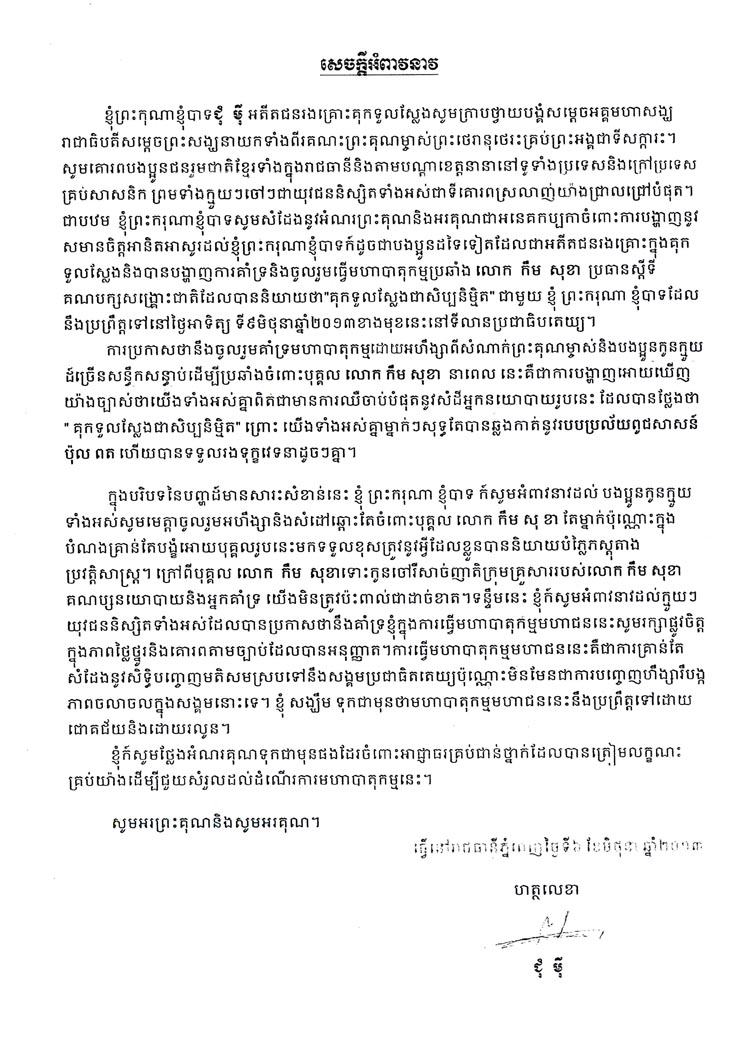 សេចក្តីអំពាវនាវ
ខ្ញុំព្រះកុណាខ្ញុំបាទជុំ ម៉ី អតីតជនរងគ្រោះគុកទួលស្លែងសូមក្រាបថ្វាយបង្គំសម្តេចអគ្គមហាសង្ឃ
រាជាធិបតីសម្តេចព្រះសង្ឃនាយកទាំងពីរគណះព្រះគុណម្ចាស់ព្រះថេរានុថេរះគ្រប់ព្រះអង្គជាទីសក្ការះ។
សូមគោរពបងប្អូនជនរួមជាតិខ្មែរទាំងក្នុងរាជធានីនិងតាមបណ្តាខេត្តនានានៅទូទាំងប្រទេសនិងក្រៅប្រទេស
គ្រប់សាសនិក ព្រមទាំងក្មួយៗចៅៗជាយុវជននិស្សិតទាំងអស់ជាទីគោរពស្រលាញ់យ៉ាងជ្រាលជ្រៅបំផុត។
ជាបឋម ខ្ញុំព្រះករុណាខ្ញុំបាទសូមសំដែងនូវអំណរព្រះគុណនិងអរគុណជាអនេគកប្បកាចំពោះការបង្ហាញនូវ
សមានចិត្តអានិតអាសូរដល់ខ្ញុំព្រះករុណាខ្ញុំបាទក៍ដូចជាបងប្អូនដទៃទៀតដែលជាអតីតជនរងគ្រោះក្នុងគុក
ទួលស្លែងនិងបានបង្ហាញការគាំទ្រនិងចូលរួមធ្វើមហាបាតុកម្មប្រឆាំង លោក កឹម សុខា ប្រធានស្តីទី
គណបក្សសង្គ្រោះជាតិដែលបាននិយាយថា"គុកទួលស្លែងជាសិប្បនិម្មិត" ជាមួយ ខ្ញុំ ព្រះករុណា ខ្ញុំបាទដែល
នឹងប្រព្រឹត្តទៅនៅថ្ងៃអាទិត្យ ទី៩មិថុនាឆ្នាំ២០១៣ខាងមុខនេះនៅទីលានប្រជាធិបតេយ្យ។
ការប្រកាសថានឹងចូលរួមគាំទ្រមហាបាតុកម្មដោយអហឹង្សាពីសំណាក់ព្រះគុណម្ចាស់និងបងប្អូនកូនក្មួយ
ដ៍ច្រើនសន្ធឹកសន្ធាប់ដើម្បីប្រឆាំងចំពោះបុគ្គល លោក កឹម សុខា នាពេល នេះគឺជាការបង្ហាញអោយឃើញ
យ៉ាងច្បាស់ថាយើងទាំងអស់គ្នាពិតជាមានការឈឺចាប់បំផុតនូវសំដីអ្នកនយោបាយរូបនេះ ដែលបានថ្លែងថា
" គុកទួលស្លែងជាសិប្បនិម្មិត" ព្រោះ យើងទាំងអស់គ្នាម្នាក់ៗសុទ្ធតែបានឆ្លងកាត់នូវរបបប្រល័យពូជសាសន៍
ប៉ុល ពត ហើយបានទទួលរងទុក្ខវេទនាដូចៗគ្នា។
ក្នុងបរិបទនៃបញ្ហាដ៍មានសារះសំខាន់នេះ ខ្ញុំ ព្រះករុណា ខ្ញុំបាទ ក៍សូមអំពាវនាវដល់ បងប្អូនកូនក្មួយ
ទាំងអស់សូមមេត្តាចូលរួមអហឹង្សានិងសំដៅឆ្ពោះតែចំពោះបុគ្គល លោក កឹម សុ ខា តែម្នាក់ប៉ុណ្ណោះក្នុង
បំណងគ្រាន់តែបង្ខំអោយបុគ្គលរូបនេះមកទទួលខុសត្រូវនូវអ្វីដែលខ្លួនបាននិយាយបំភ្លៃភស្តុតាង
ប្រវត្តិសាស្ត្រ។ ក្រៅពីបុគ្គល លោក កឹម សុខាទោះកូនចៅរឺសាច់ញាតិក្រុមគ្រួសាររបស់លោក កឹម សុខា
គណប្សនយោបាយនិងអ្នកគាំទ្រ យើងមិនត្រូវប៉ះពាល់ជាដាច់ខាត។ទន្ទឹមនេះ ខ្ញុំក៍សូមអំពាវនាវដល់ក្មួយៗ
យុវជននិស្សិតទាំងអស់ដែលបានប្រកាសថានឹងគាំទ្រខ្ញុំក្នុងការធ្វើមហាបាតុកម្មមហាជននេះសូមរក្សាផ្លូវចិត្ត
ក្នុងភាពថ្លៃថ្នូរនិងគោរពតាមច្បាប់ដែលបានអនុញ្ញាត។ការធ្វើមហាបាតុកម្មមហាជននេះគឺជាការគ្រាន់តែ
សំដែងនូវសិទ្ធិបញ្ចេញមតិសមស្របទៅនឹងសង្គមប្រជាធិតតេយ្យប៉ុណ្ណោះមិនមែនជាការបញ្ចេញហឹង្សារឺបង្ក
ភាពចលាចលក្នុងសង្គមនោះទេ។ ខ្ញុំ សង្ឃឹម ទុកជាមុនថាមហាបាតុកម្មមហាជននេះនឹងប្រព្រឹត្តទៅដោយ
ជោគជ័យនិងដោយរលូន។
ខ្ញុំក៍សូមថ្លែងអំណរគុណទុកជាមុនផងដែរចំពោះអាជ្ញាធរគ្រប់ជាន់ថ្នាក់ដែលបានត្រៀមលក្ខណះ
គ្រប់យ៉ាងដើម្បីជួយសំរួលដល់ដំណើរការមហាបាតុកម្មនេះ។
សូមអរព្រះគុណនិងសូមអរគុណ។
ធ្វើនៅរាជធានីភ្នំពេញថ្ងៃទី៦ ខែមិថុនា ឆ្នាំ២០១៣
ហត្ថលេខា
ជុំ ម៉ី